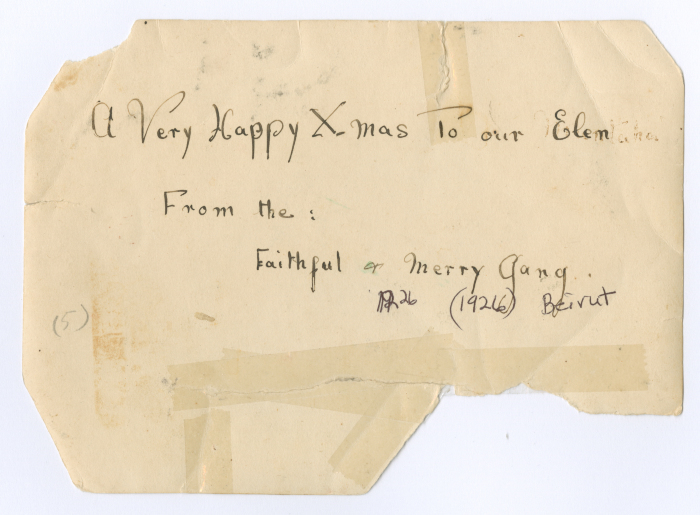 A Very Happy X-mas To our Elen
From the:
Faithful or Merry Gang.
(1926) Beirut
(5)